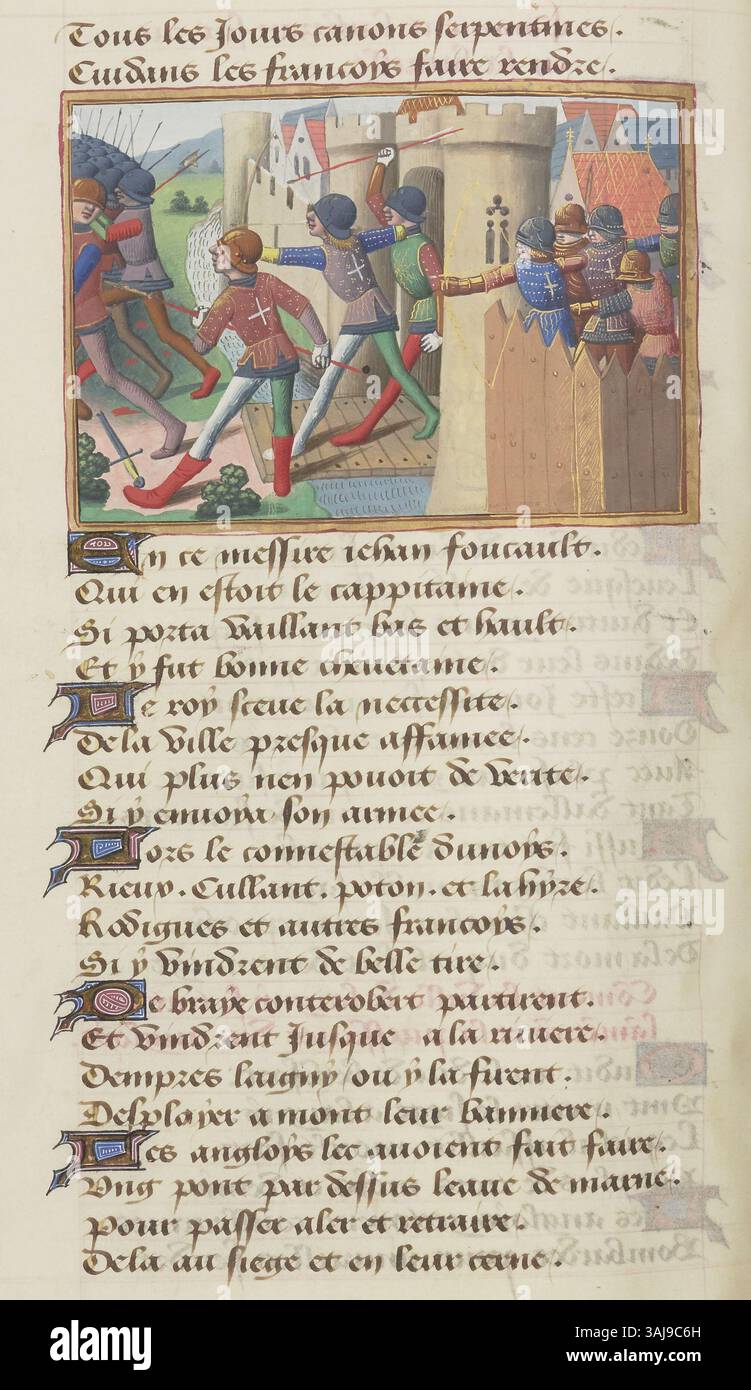 Tous les Jours canons serpentines.
Cuidans les francoys faire rendre.
En ce messire iehan foucault.
Qui en estoit le cappitaine.
Si porta vaillant bas et hault.
Et y fut bonne cheuetaine.
Le roy sceue la neccessite.
De la ville presque affamee.
Qui plus nen pouoit de verite.
Si y enuoya son armee.
Lors le connestable dunoys.
Rieux. Cullant. poton. et lahyre.
Rodigues et autres francoys.
Si y vindrent de belle tire.
De braye conterobert partirent.
Et vindrent Jusque a la riuiere.
Dempres laigny ou y la firent.
Desployer a mont leur banniere.
Les angloys lec auoient fait faire.
Ung pont par dessus leaue de marne.
Pour passer aler et retraire.
Dela au siege et en leur cerne.
alamy
Image ID: 3AJ9C6H
www.alamy.com